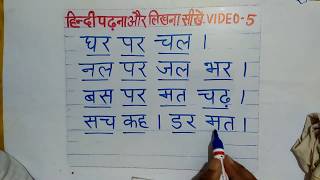 हिन्दी पढ़ना और लिखना सीखें. VIDEO-5
घर पर चल ।
नल पर जल भर ।
बस पर मत चढ़ ।
सच कह । डर मत ।